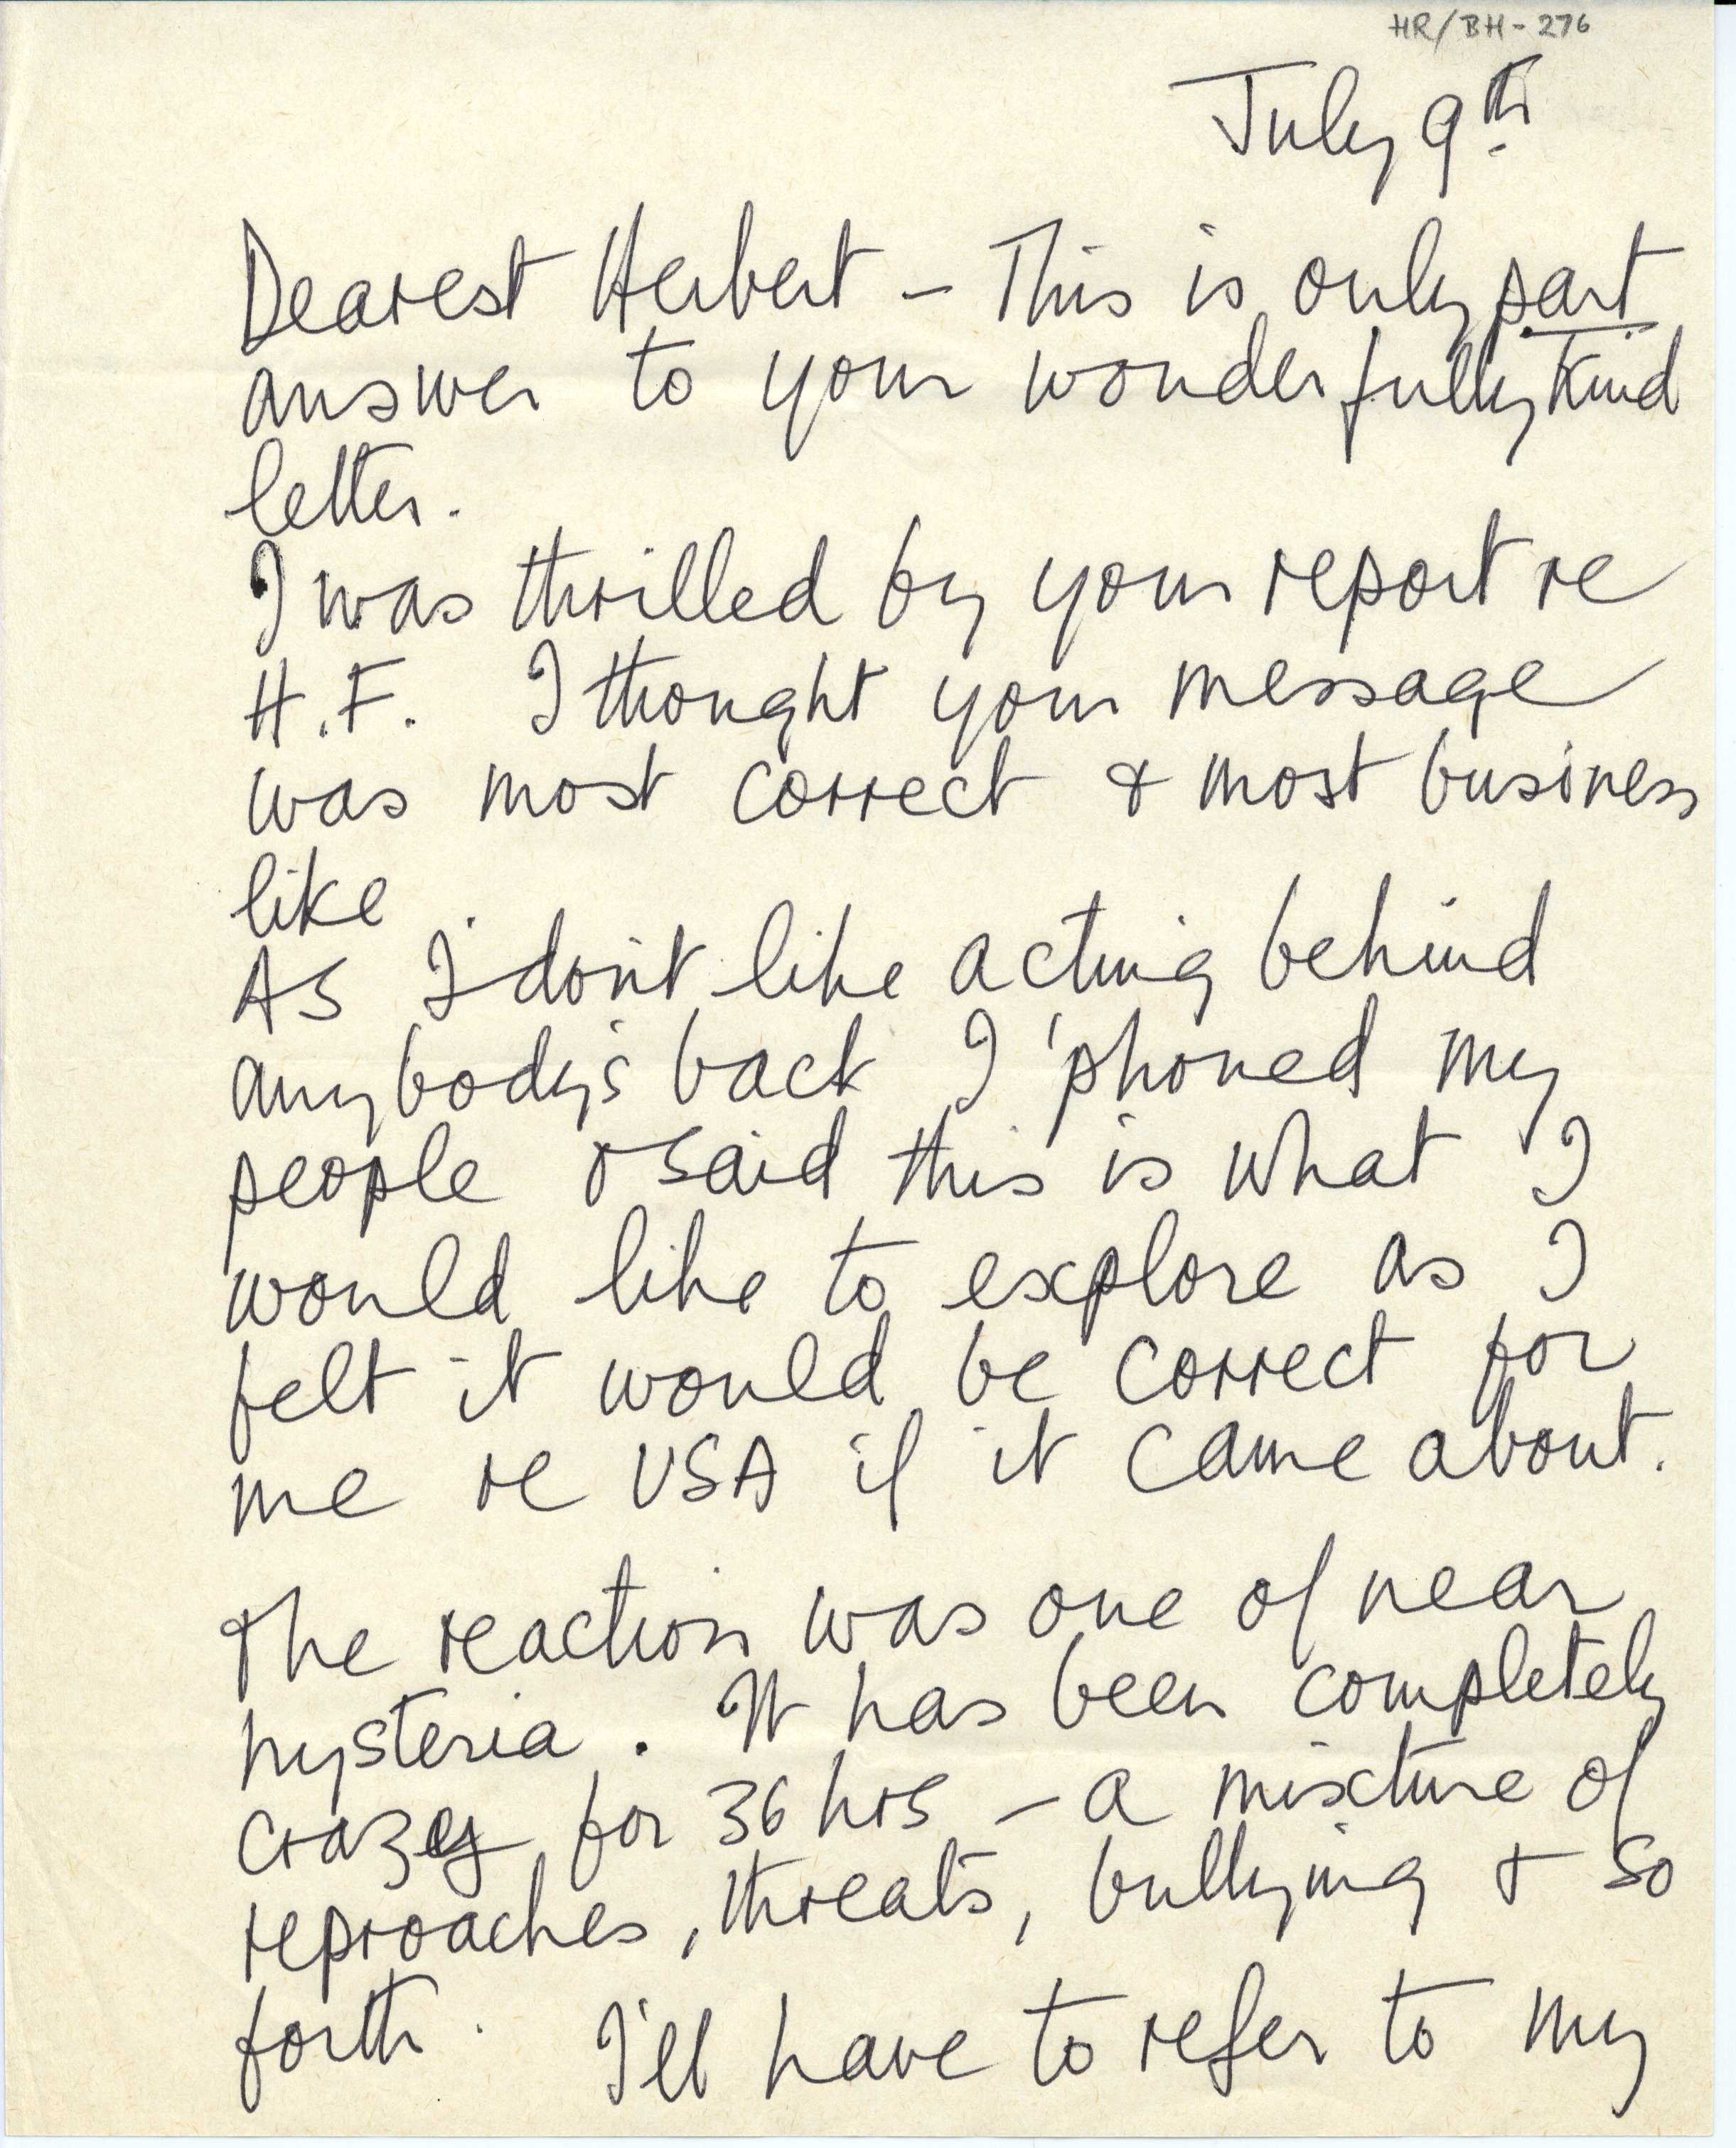 HR/BH-276
July 9th
Dearest Herbert – This is only part
answer to your wonderfully kind
letter.
I was thrilled by your report re
H.F. I thought your message
was most correct & most business
like.
As I don't like acting behind
anybody's back I 'phoned my
people & said this is what I
would like to explore as I
felt it would be correct for
me re USA if it came about.
The reaction was one of near
hysteria. It has been completely
crazy for 36 hrs – a mixture of
reproaches, threats, bullying & so
forth. I'll have to refer to my